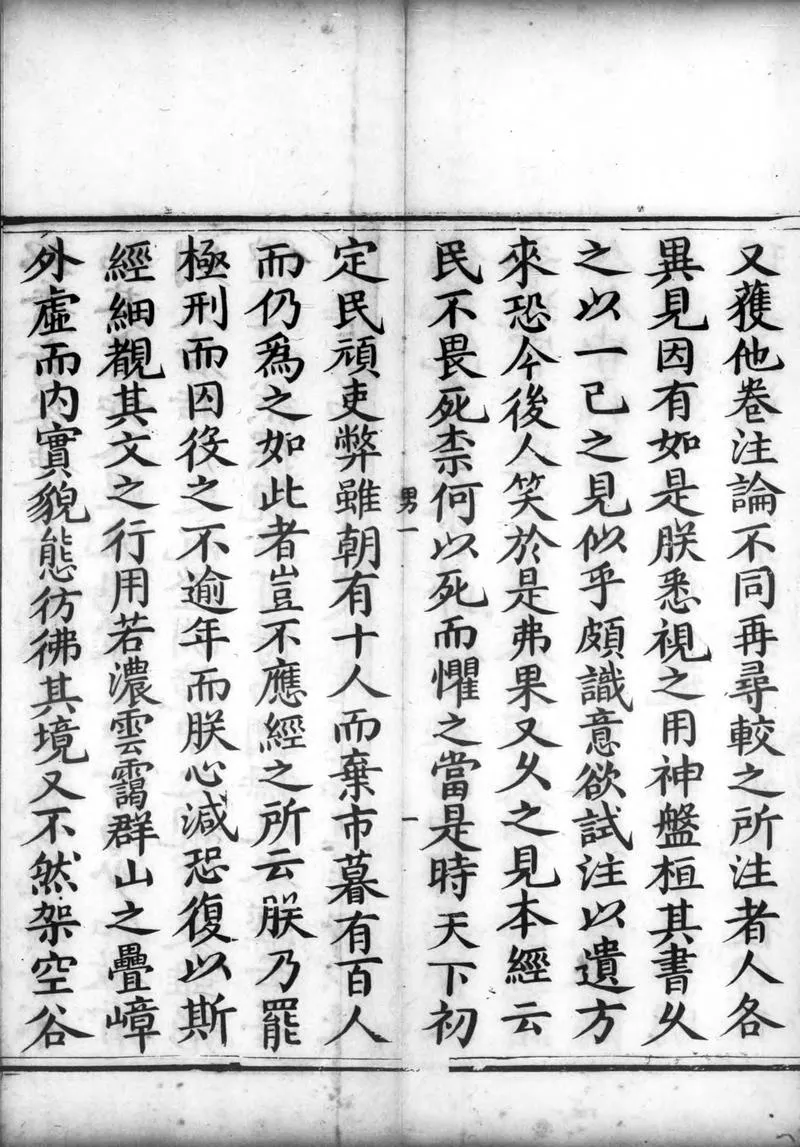 又獲他卷注論不同再尋較之所注者人各
異見因有如是朕悉視之用神盤桓其書久
之以一己之見似乎頗識意欲試注以遺方
來恐今後人笑於是弗果又久之見本經云
民不畏死柰何以死而懼之當是時天下初
男一
一
定民頑吏弊雖朝有十人而棄市暮有百人
而仍爲之如此者豈不應經之所云朕乃罷
極刑而囚役之不逾年而朕心減恐復以斯
經細觀其文之行用若濃雲靄群山之疊嶂
外虛而内實貌態彷彿其境又不然架空谷